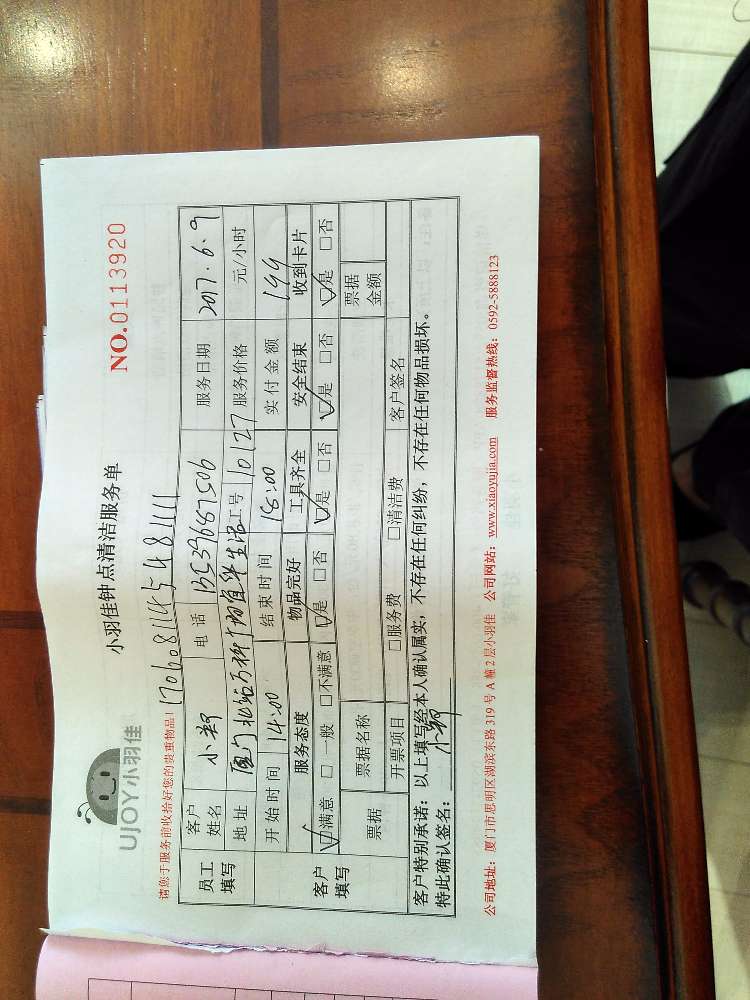 UJOY小羽佳
小羽佳钟点清洁服务单
NO.0113920
请您于服务前收拾好您的贵重物品！
员工填写
客户姓名 小郑 电话 服务日期 2017.6.9
地址 厦门北站万科广场 生活 工号 10127 服务价格 元/小时
开始时间 14:00 结束时间 18:00 实付金额 144
客户填写
服务态度 物品完好 工具齐全 安全结束 收到卡片
☑满意 □一般 □不满意 ☑是 □否 ☑是 □否 ☑是 □否 ☑是 □否
票据 票据名称 □服务费 □清洁费 票据金额
开票项目 客户签名
客户特别承诺：以上填写经本人确认属实，不存在任何纠纷，不存在任何物品损坏。
特此确认签名： 小郑
公司地址：厦门市思明区湖滨东路319号A幢2层小羽佳 公司网站：www.xiaoyujia.com 服务监督热线：0592-5888123